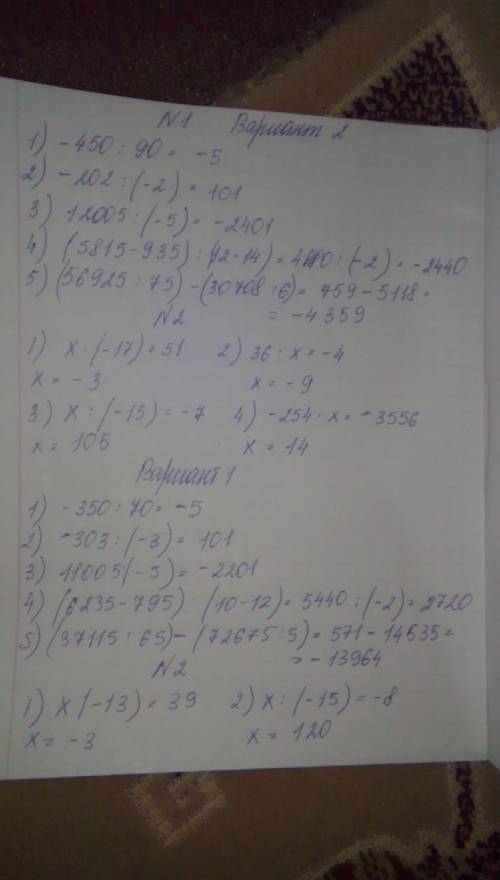 N1 Вариант 2
1) -450 : 90 = -5
2) -202 : (-2) = 101
3) 12005 : (-5) = -2401
4) (5815-935) : (12-14) = 4880 : (-2) = -2440
5) (56925 : 75) - (30708 : 6) = 759 - 5118 =
N2 = -4359
1) x · (-17) = 51 2) 36 : x = -4
x = -3 x = -9
3) x : (-15) = -7 4) -254 · x = -3556
x = 105 x = 14
Вариант 1
1) -350 : 70 = -5
2) -303 : (-3) = 101
3) 11005 (-5) = -2201
4) (6235-795) (10-12) = 5440 : (-2) = 2720
5) (37115 : 65) - (72675 : 5) = 571 - 14535 =
N2 = -13964
1) x (-13) = 39 2) x : (-15) = -8
x = -3 x = 120